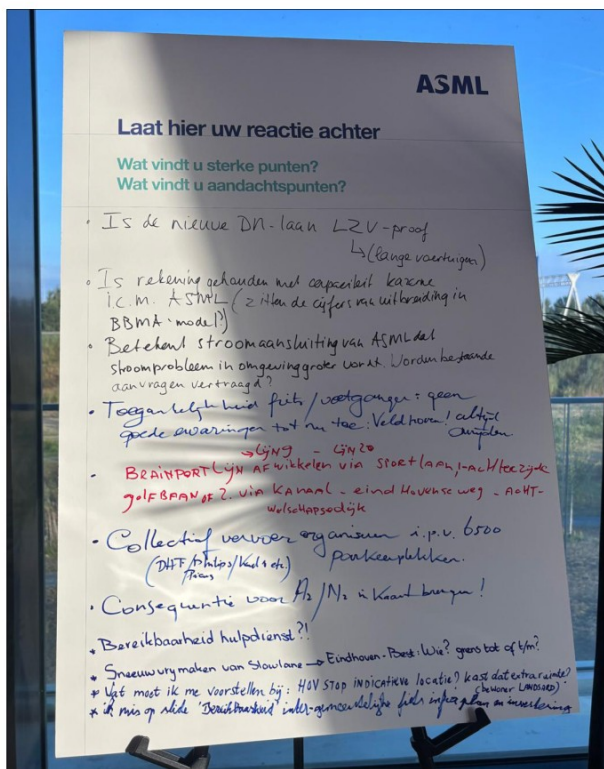 ASML
Laat hier uw reactie achter
Wat vindt u sterke punten?
Wat vindt u aandachtspunten?
• Is de nieuwe DN-laan LZV-proof
↳ (lange voertuigen)
• Is rekening gehouden met capaciteit kazerne
i.c.m. ASML (zitten de cijfers van uitbreiding in
BBMA-model?)
• Betekent stroomaansluiting van ASML dat
stroomprobleem in omgeving groter wordt. Worden bestaande
aanvragen vertraagd?
• Toegankelijkheid fiets/voetganger: geen
goede ervaringen tot nu toe: Veldhoven! altijd
→ LIJN 9 - LIJN 20
• BRAINPORTLIJN AFwikkelen via SPORTLAAN, 1-ACHTERZIJDE
golFBAAN OF 2. via KANAAL - eindHovense weg - ACHT-
• Collectief vervoer organiseren i.p.v. 6500
parkeerplekken.
(DAF/Philips/ etc.)
• Consequentie voor A2/N2 in kaart brengen!
* Bereikbaarheid hulpdienst?!
* Sneeuwvrij maken van Slowlane → Eindhoven-Best: Wie? grens tot of t/m?
* Wat moet ik me voorstellen bij: HOV STOP INDICATIEVE LOCATIE? kost dat extra ruimte?
(bewoner LANDGOED)
* ik mis op slide 'Bereikbaarheid' inter-gemeentelijke fiets infra plan en investering